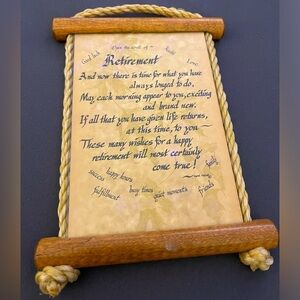 Upon the event of ~
Good luck
Health
Love
Retirement
And now there is time for what you have
always longed to do,
May each morning appear to you, exciting
and brand new.
If all that you have given life returns,
at this time, to you ~
These many wishes for a happy
retirement will most certainly
come true!
success
happy hours
family
fulfillment
busy times
quiet moments
friends